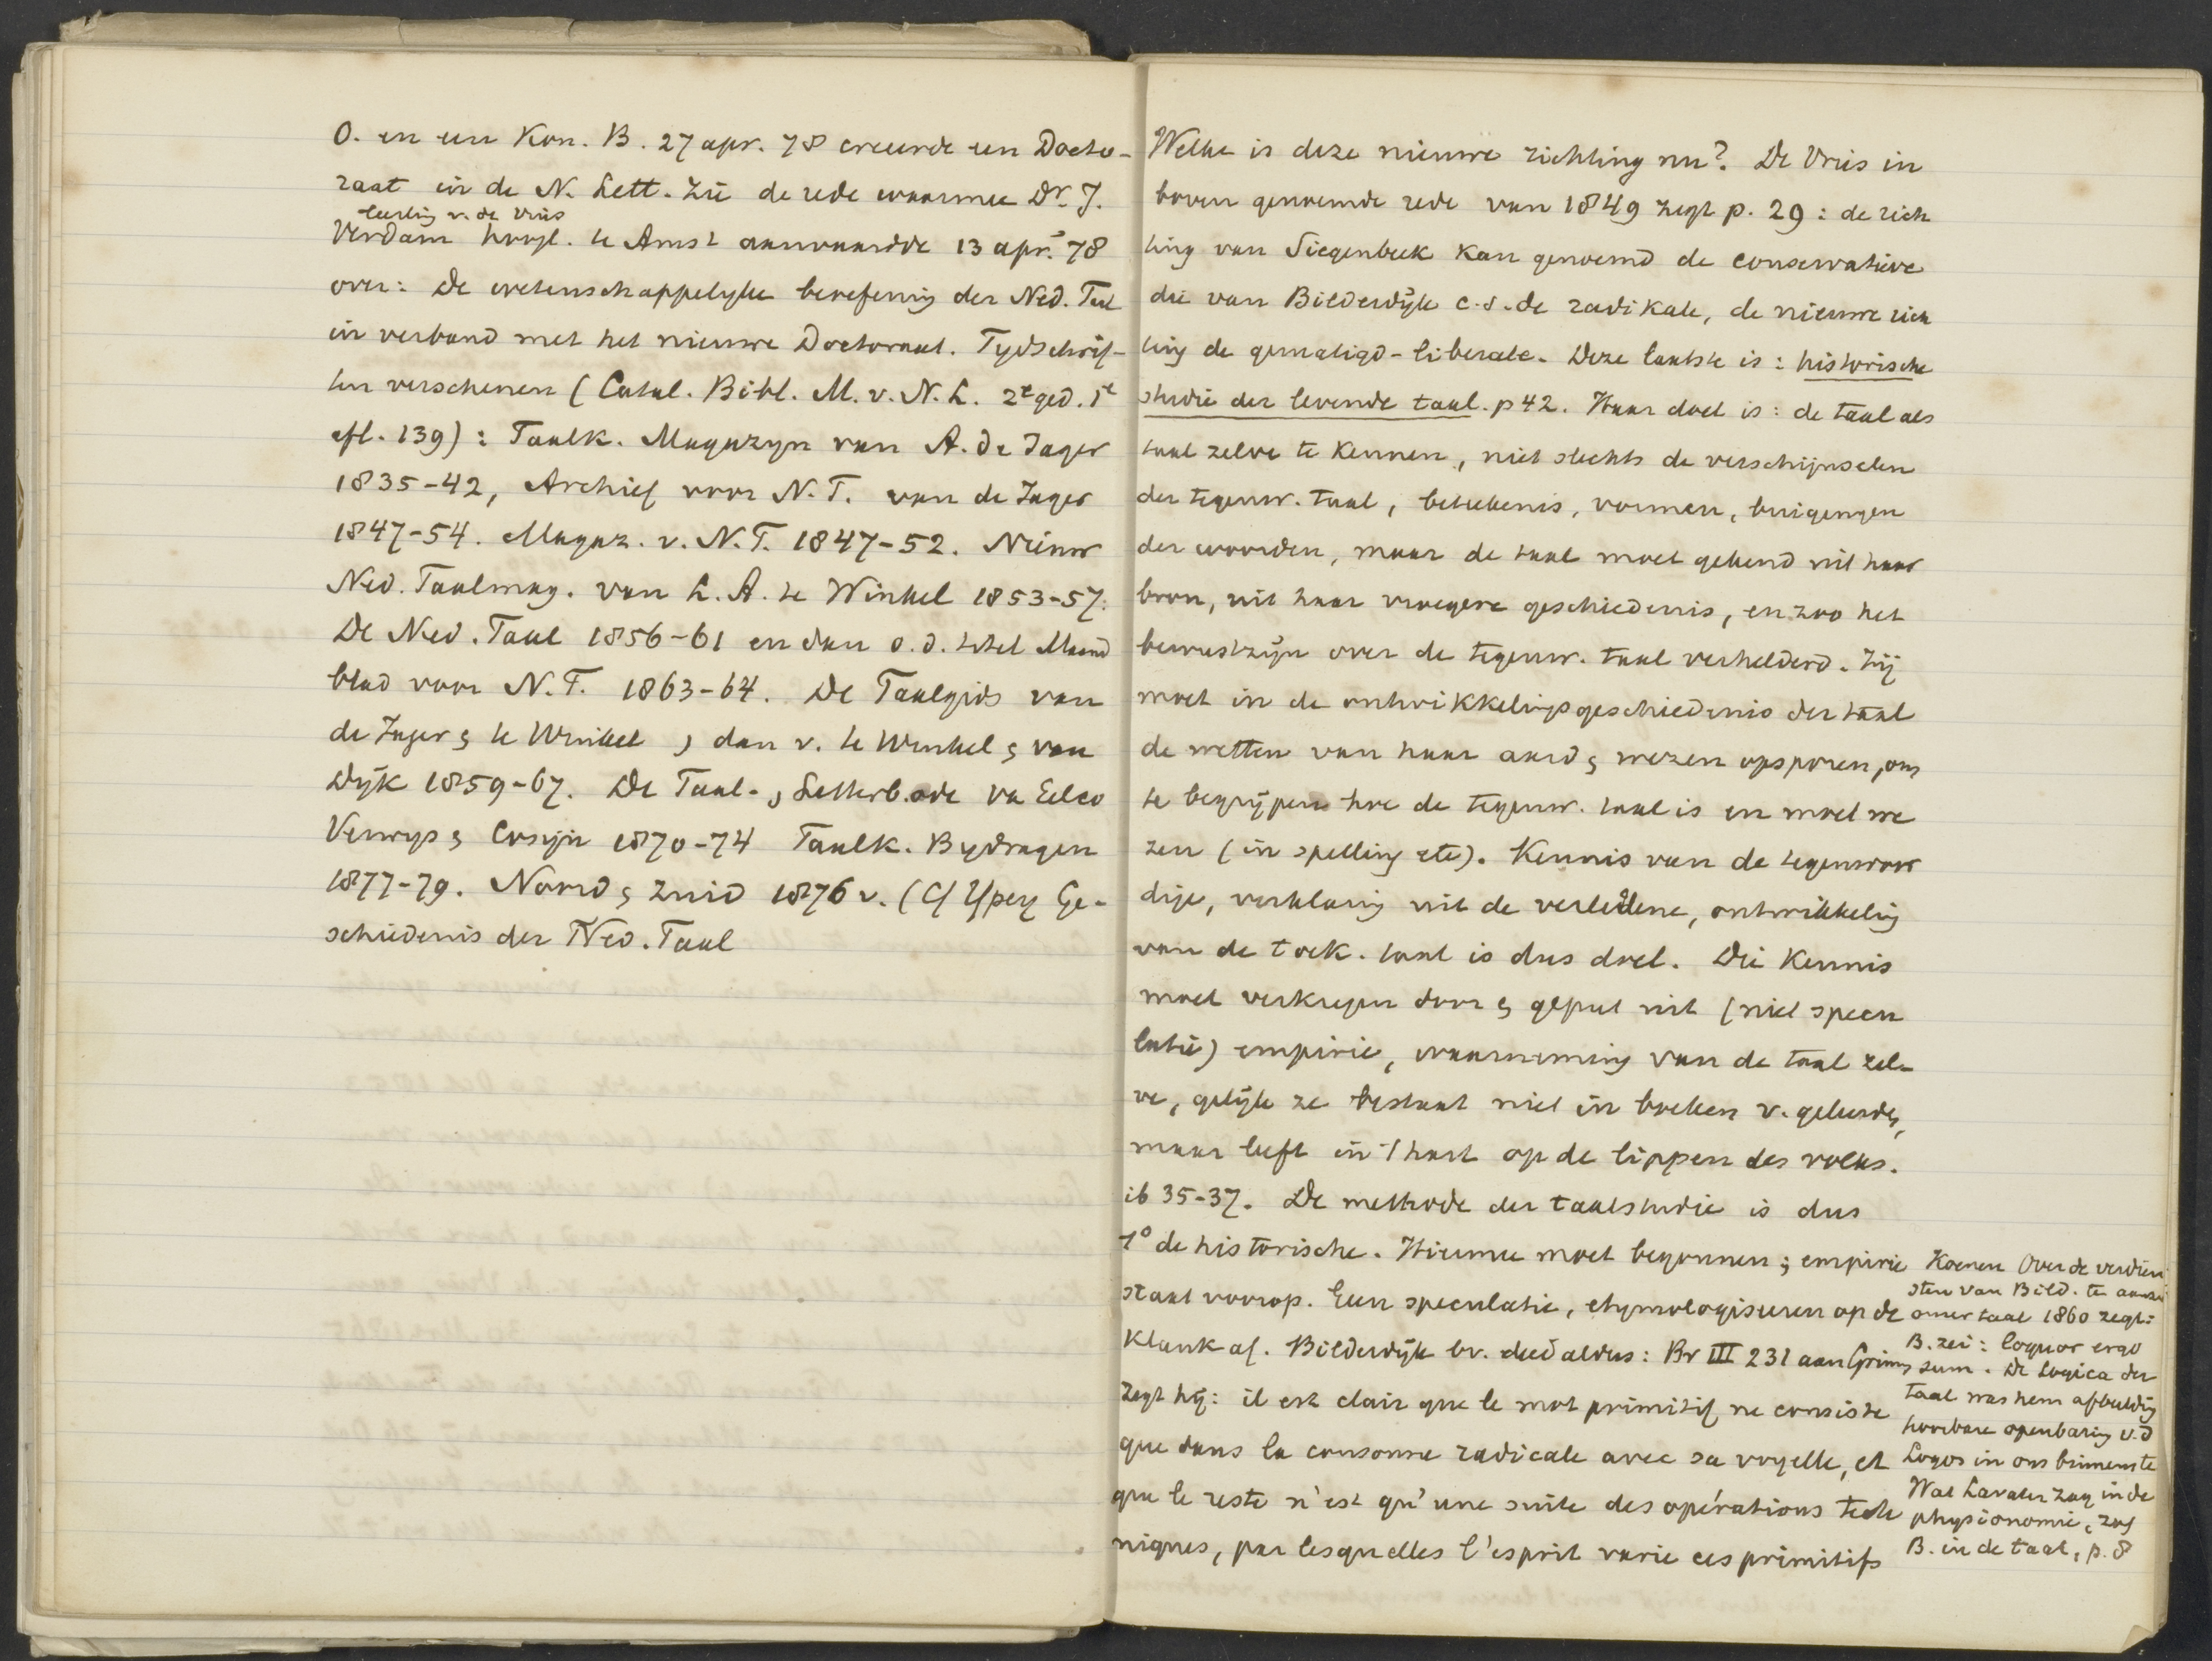 O. en een Kon. B. 27 apr. 78 creeerde een Docto-
raat in de N. Lett. Zie de rede waarmee Dr. J.
leerling v. de Vries
Verdam hoogl. te Amst aanvaardde 13 apr. 78
over: De wetenschappelyke beoefening der Ned. Taal
in verband met het nieuwe Doctoraat. Tydschrif-
ten verschenen (Catal. Bibl. M. v. N. L. 2e ged. 1e
afl. 139): Taalk. Magazyn van A. de Jager
1835-42, Archief voor N. T. van de Jager
1847-54. Magaz. v. N. T. 1847-52. Nieuw
Ned. Taalmag. van L. A. te Winkel 1853-57.
De Ned. Taal 1856-61 en dan o. d. titel Maand
blad voor N. T. 1863-64. De Taalgids van
de Jager & te Winkel, dan v. te Winkel & van
Dyk 1859-67. De Taal- & Letterbode va Eelco
Verwys & Cosijn 1870-74 Taalk. Bydragen
1877-79. Noord & Zuid 1876 v. (Cf Ypey Ge-
schiedenis der Ned. Taal
Welke is deze nieuwe richting nu? De Vries in
boven genoemde rede van 1849 zegt p. 29: de rich
ting van Siegenbeek kan genoemd de conservatieve
die van Bilderdijk c.s. de radikale, de nieuwe rich
ting de gematigd-liberale. Deze laatste is: historische
studie der levende taal. p 42. Haar doel is: de taal als
taal zelve te kennen, niet slechts de verschijnselen
der tegenw. taal, beteekenis, vormen, buigingen
der woorden, maar de taal moet gekend uit haar
bron, uit haar vroegere geschiedenis, en zoo het
bewustzijn over de tegenw. taal verhelderd. Zij
moet in de ontwikkelingsgeschiedenis der taal
de wetten van haar aard & wezen opsporen, om
te begrijpen hoe de tegenw. taal is en moet we
zen (in spelling etc). Kennis van de tegenwoor
dige, verklaring uit de verledene, ontwikkeling
van de toek. taal is dus doel. Die kennis
moet verkregen door & geput uit (niet specu
latie) empirie, waarneming van de taal zel-
ve, gelijk ze bestaat niet in boeken v. geleerden,
maar leeft in 't hart op de lippen des volks.
ib 35-37. De methode der taalstudie is dus
1° de historische. Hiermee moet begonnen; empirie
staat voorop. Geen speculatie, etymologiseeren op de
klank af. Bilderdijk bv. deed aldus: Br III 231 aan Grimm
zegt hij: il est clair que le mot primitif ne consiste
que dans la consonne radicale avec sa voyelle, et
que le reste n'est qu'une suite des opérations tech
niques, par lesquelles l'esprit varie ces primitifs
Koenen Over de verdien
sten van Bild. te aanzi
onzer taal 1860 zegt:
B. zei: loquor ergo
sum. De Logica der
taal was hem afbeelding
hoorbare openbaring v. d
Logos in ons binnenste
Wat Lavater zag in de
physionomie, zag
B. in de taal, p. 8